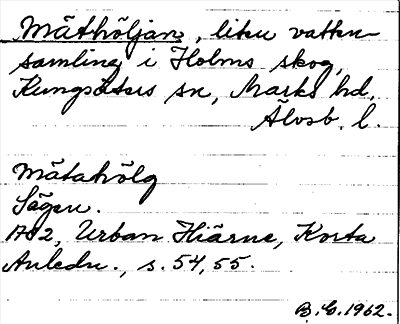 Mäthöljan, liten vatten-
samling i Holms skog,
Kungsäters sn, Marks hd,
Älvsb. l.
Mätahölg
Sägen.
1702, Urban Hiärne, Korta
Anledn., s. 54, 55.
B.E. 1962.